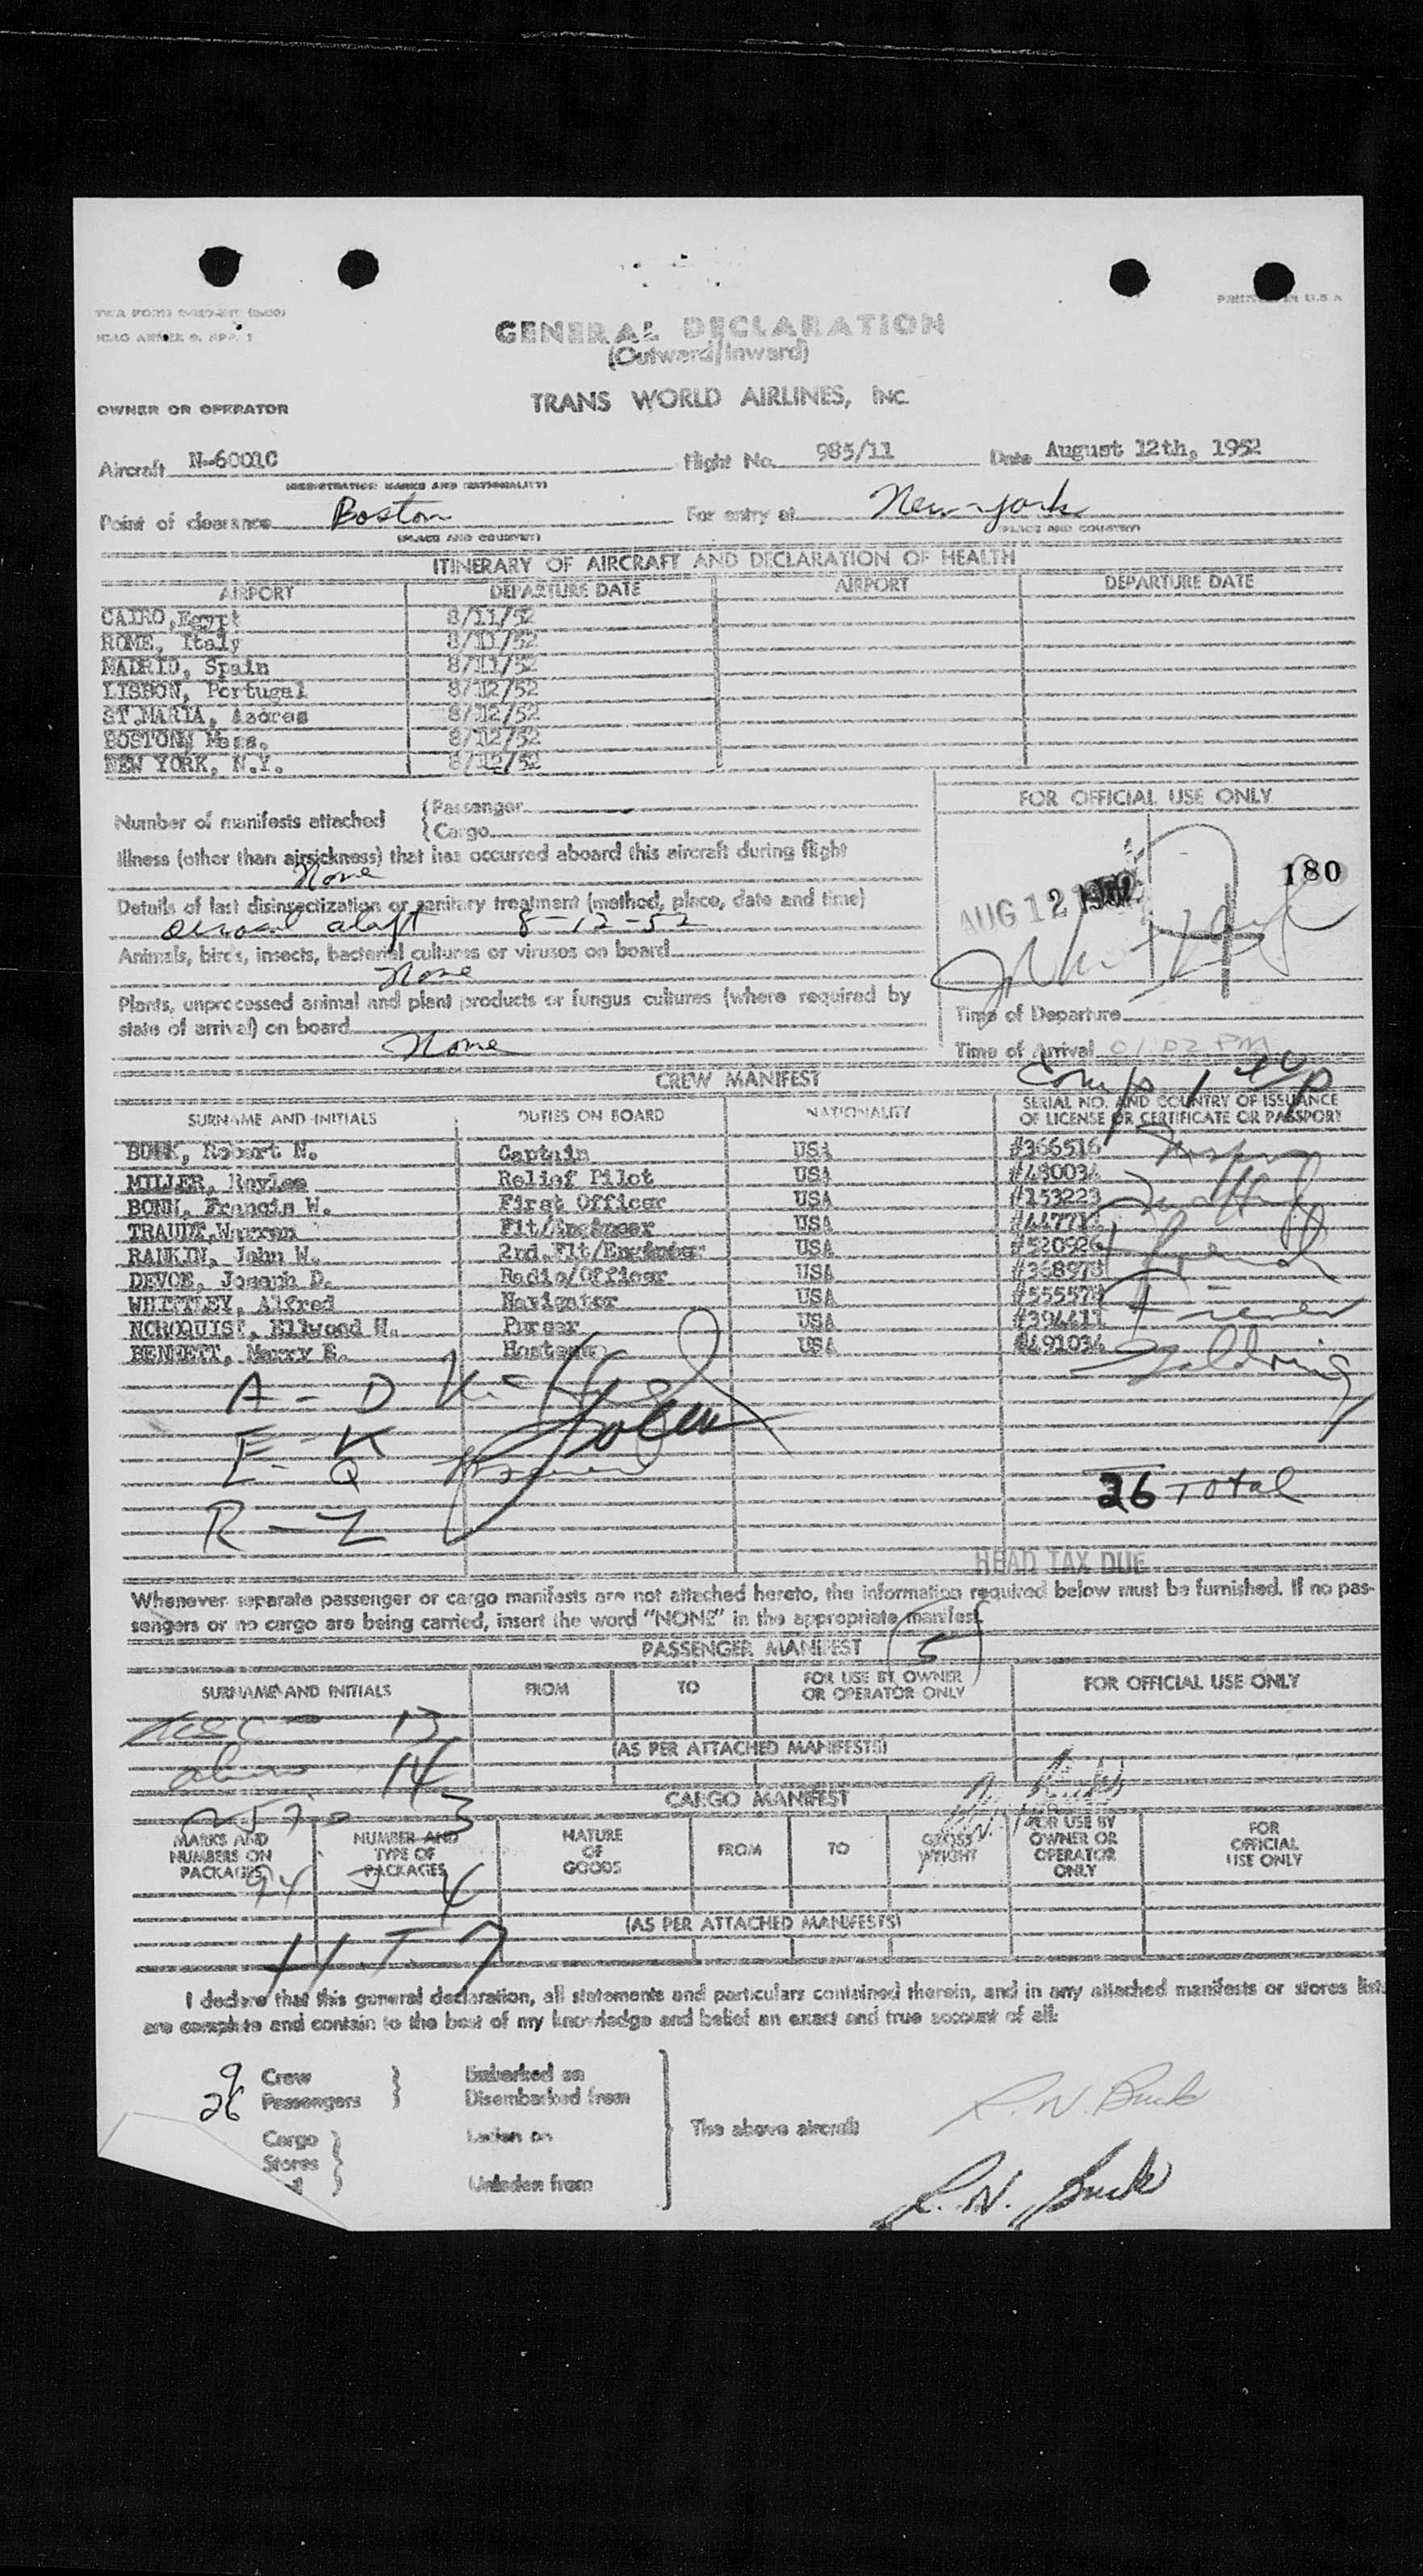 PRINTED IN U.S.A
GENERAL DECLARATION
(Outward/Inward)
TRANS WORLD AIRLINES, INC.
OWNER OR OPERATOR
Aircraft N-6001C Flight No. 985/11 Date August 12th, 1952
(REGISTRATION MARKS AND NATIONALITY)
Point of clearance Boston For entry at New York
(PLACE AND COUNTRY) (PLACE AND COUNTRY)
ITINERARY OF AIRCRAFT AND DECLARATION OF HEALTH
AIRPORT DEPARTURE DATE AIRPORT DEPARTURE DATE
CAIRO, Egypt 8/11/52
ROME, Italy 8/11/52
MADRID, Spain 8/11/52
LISBON, Portugal 8/12/52
ST.MARIA, Azores 8/12/52
BOSTON, Mass. 8/12/52
NEW YORK, N.Y. 8/12/52
FOR OFFICIAL USE ONLY
Number of manifests attached {Passenger
{Cargo
Illness (other than airsickness) that has occurred aboard this aircraft during flight
None
180
Details of last disinsectization or sanitary treatment (method, place, date and time)
8-12-52
AUG 12 1952
Animals, birds, insects, bacterial cultures or viruses on board
None
Plants, unprocessed animal and plant products or fungus cultures (where required by
state of arrival) on board
None
Time of Departure
Time of Arrival 01:02 PM
CREW MANIFEST
SURNAME AND INITIALS DUTIES ON BOARD NATIONALITY SERIAL NO. AND COUNTRY OF ISSUANCE
OF LICENSE OR CERTIFICATE OR PASSPORT
BUCK, Robert N. Captain USA #366516
MILLER, Roylee Relief Pilot USA #480034
BONN, Francis W. First Officer USA #153223
Warren Flt/Engineer USA
RANKIN, John W. 2nd.Flt/Engineer USA #520926
DEVOE, Joseph D. Radio/Officer USA #368978
WHITTLEY, Alfred Navigator USA #555578
NORDQUIST, Ellwood H. Purser USA #394411
BENNETT, Merry E. Hostess USA #491034
A - D
E - K
L - Q
R - Z
26 Total
HEAD TAX DUE
Whenever separate passenger or cargo manifests are not attached hereto, the information required below must be furnished. If no pas-
sengers or no cargo are being carried, insert the word "NONE" in the appropriate manifest.
5
PASSENGER MANIFEST
SURNAME AND INITIALS FROM TO FOR USE BY OWNER
OR OPERATOR ONLY FOR OFFICIAL USE ONLY
13
(AS PER ATTACHED MANIFESTS)
14
CARGO MANIFEST
3
MARKS AND
NUMBERS ON
PACKAGES NUMBER AND
TYPE OF
PACKAGES NATURE
OF
GOODS FROM TO GROSS
WEIGHT FOR USE BY
OWNER OR
OPERATOR
ONLY FOR
OFFICIAL
USE ONLY
4
(AS PER ATTACHED MANIFESTS)
H.T. 7
I declare that this general declaration, all statements and particulars contained therein, and in any attached manifests or stores lists
are complete and contain to the best of my knowledge and belief an exact and true account of all:
9 Crew } Embarked on
26 Passengers } Disembarked from
The above aircraft
Cargo } Laden on
Stores } Unladen from
R. N. Buck
R. N. Buck